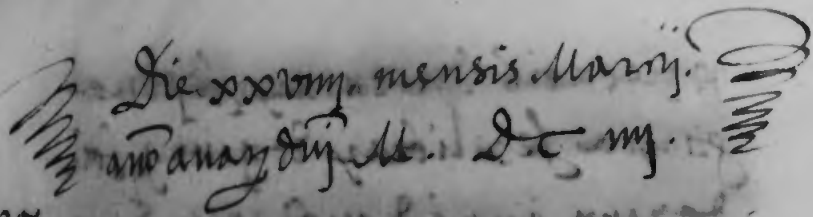 Die xxviiij. mensis Marcij.
año a naty dñj M. D. C iiij.